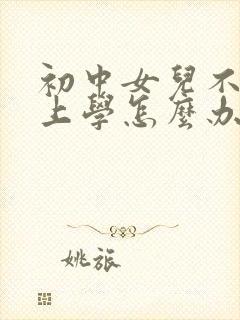 初中女兒不
上學怎麼办
姚旅